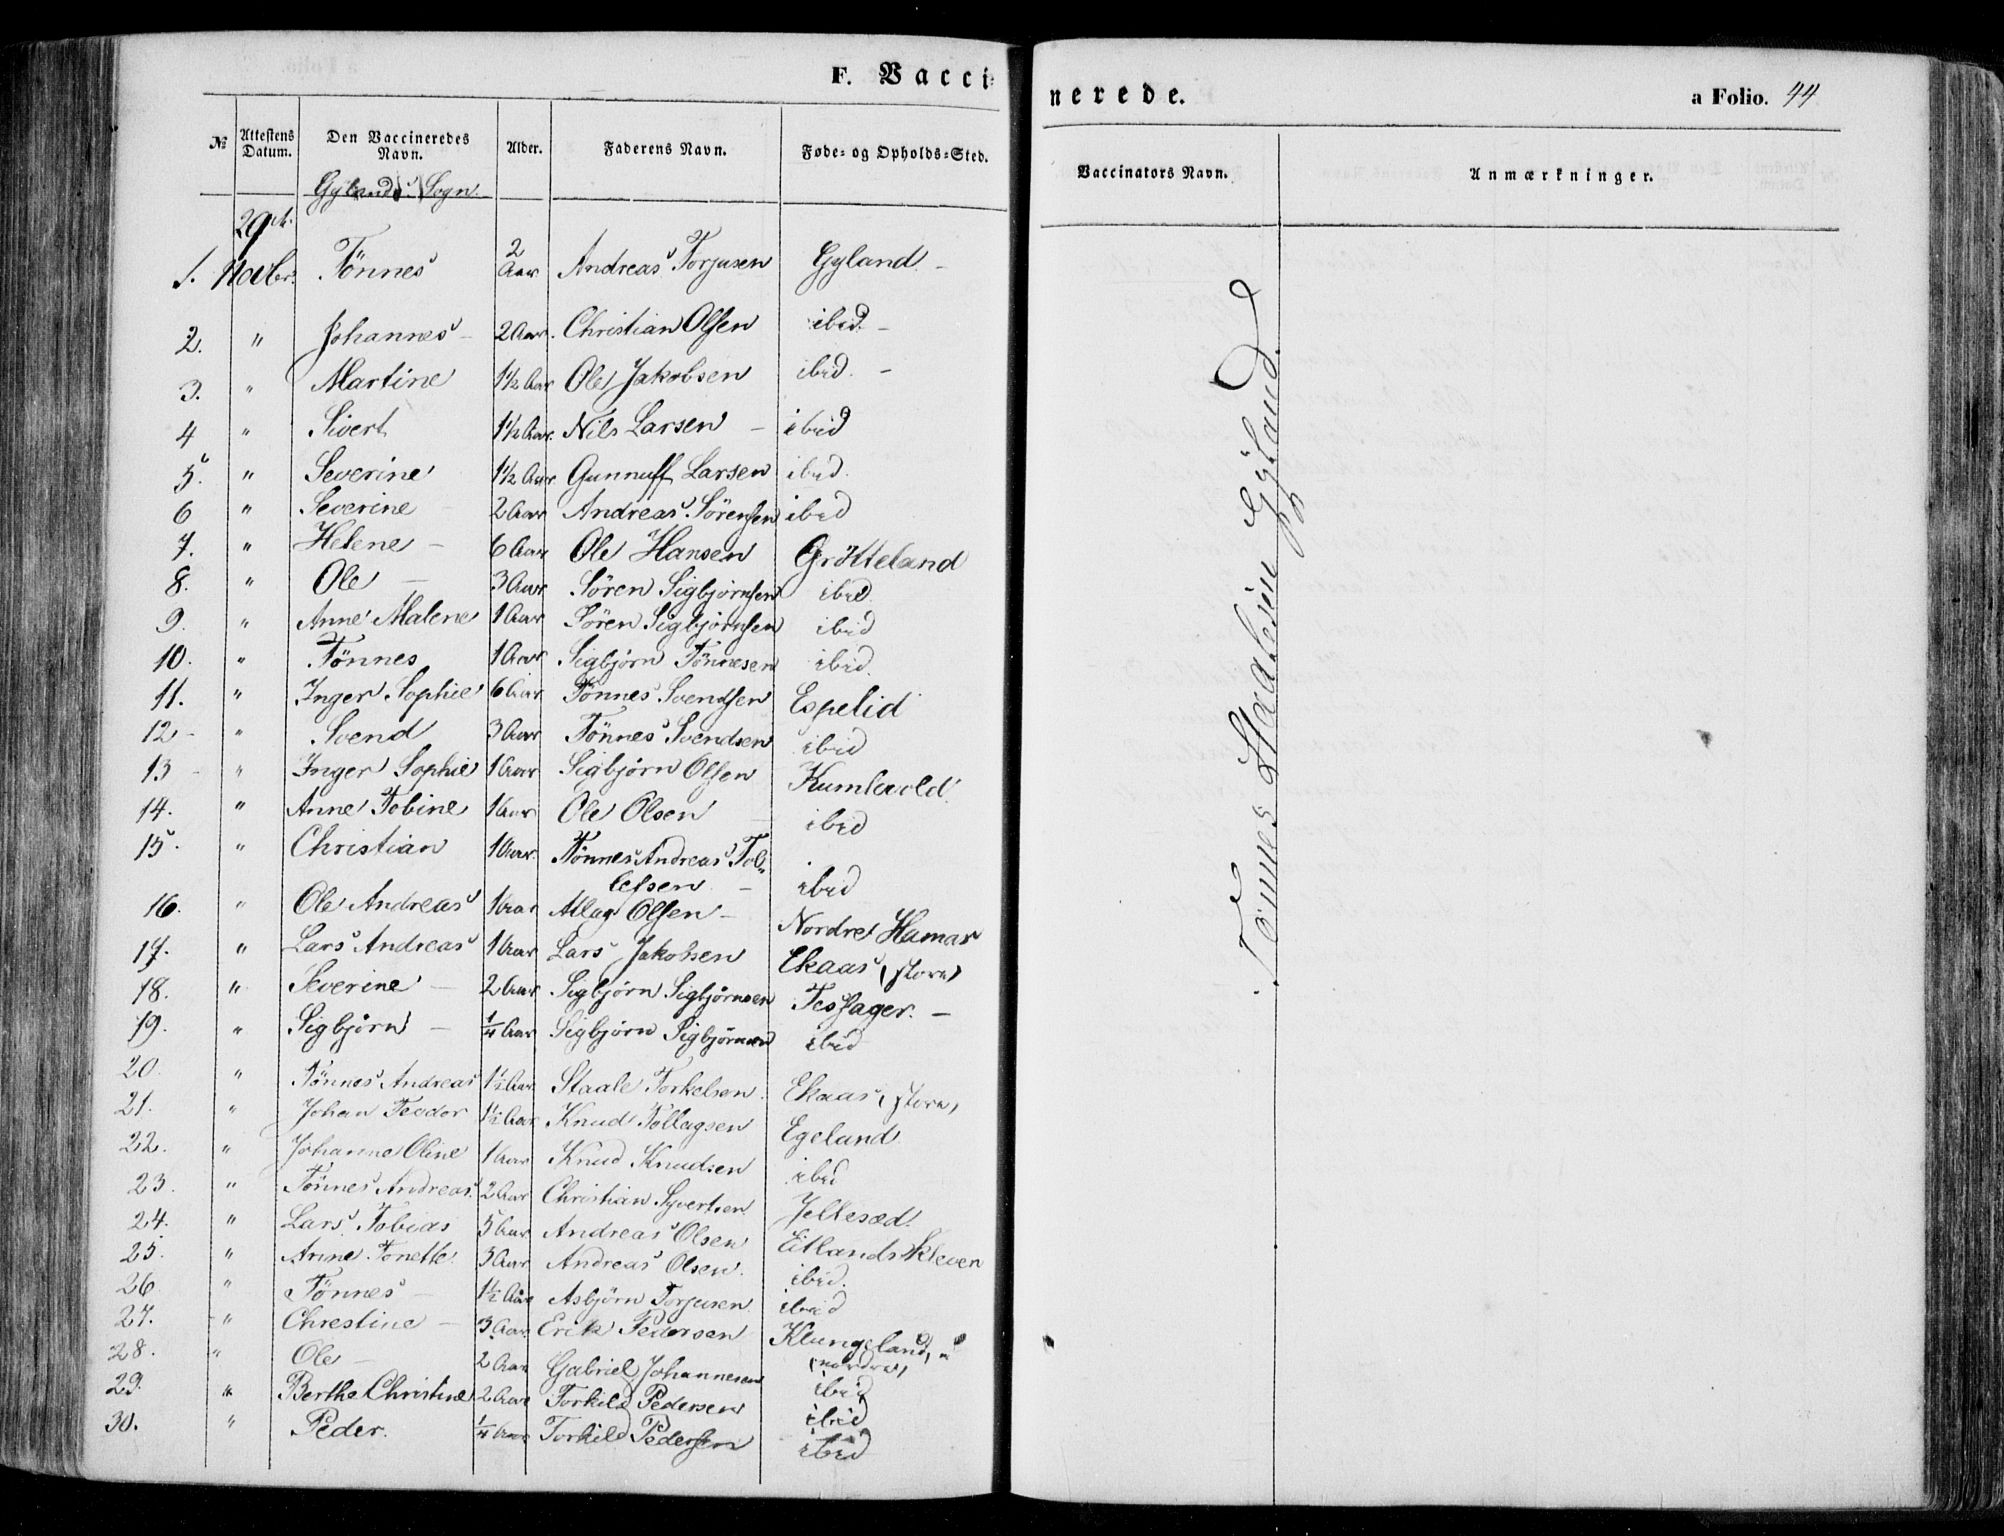 F. Vaccinerede. a Folio. 44
№ Attestens Datum. Den Vaccineredes Navn. Alder. Faderens Navn. Føde- og Opholds-Sted. Vaccinators Navn. Anmærkninger.
Gylands Sogn.
29de
1. Novbr. Tönnes 2 Aar Andreas Torjusen Gyland. -
2. " Johannes - 2 Aar. Christian Olsen ibid. -
3. " Martine 1½ Aar Ole Jakobsen ibid. -
4 " Sivert 1½ Aar. Nils Larsen - ibid
5. " Severine 1½ Aar Gunnuff Larsen ibid.
6 " Severine - 2 Aar Andreas Sörensen ibid
7. " Helene - 6 Aar Ole Hansen Grötteland
8. " Ole - 3 Aar Sören Sigbjörnsen ibid.
9. " Anne Malene 1 Aar Sören Sigbjörnsen ibid
10. " Tönnes 1 Aar Sigbjörn Tönnesen ibid.
11. " Inger Sophie 6 Aar Tönnes Svendsen Espelid
12 - " Svend 3 Aar Tönnes Svendsen ibid
13 - " Inger Sophie 1 Aar Sigbjörn Olsen Kumlevold.
14. " Anne Tobine 1 Aar Ole Olsen - ibid
15. " Christian 1 Aar. Tönnes Andreas Tol-
lefsen - ibid
16. " Ole Andreas 1 Aar Atlag Olsen - Nordre Hamar
17. " Lars Andreas 1 Aar Lars Jakobsen Ekaas (store)
18. " Severine - 2 Aar Sigbjörn Sigbjörnsen Tesfager. -
19. " Sigbjörn - ¼ Aar Sigbjörn Sigbjörnsen ibid
20. " Tönnes Andreas 1½ Aar Staale Torkelsen. Ekaas (store)
21. " Johan Teodor 1½ Aar Knud Tollagsen Egeland
22. " Johanne Oline 1 Aar Knud Knudsen ibid
23. " Tönnes Andreas. 2 Aar Christian Syvertsen Jellesæd.
24. " Lars Tobias 5 Aar Andreas Olsen Eitlandskleven
25. " Anne Tonette. 3 Aar Andreas Olsen. ibid.
26 " Tönnes - 1½ Aar Asbjörn Torjusen ibid
27. " Chrestine - 3 Aar Erik Pedersen Klungeland,
(nordre)
28. " Ole - 2 Aar Gabriel Johannesen ibid
29. " Berthe Christine 2 Aar Torkild Pedersen ibid
30. " Peder. ¼ Aar Torkild Pedersen ibid
Tönnes Staalesen Gyland.